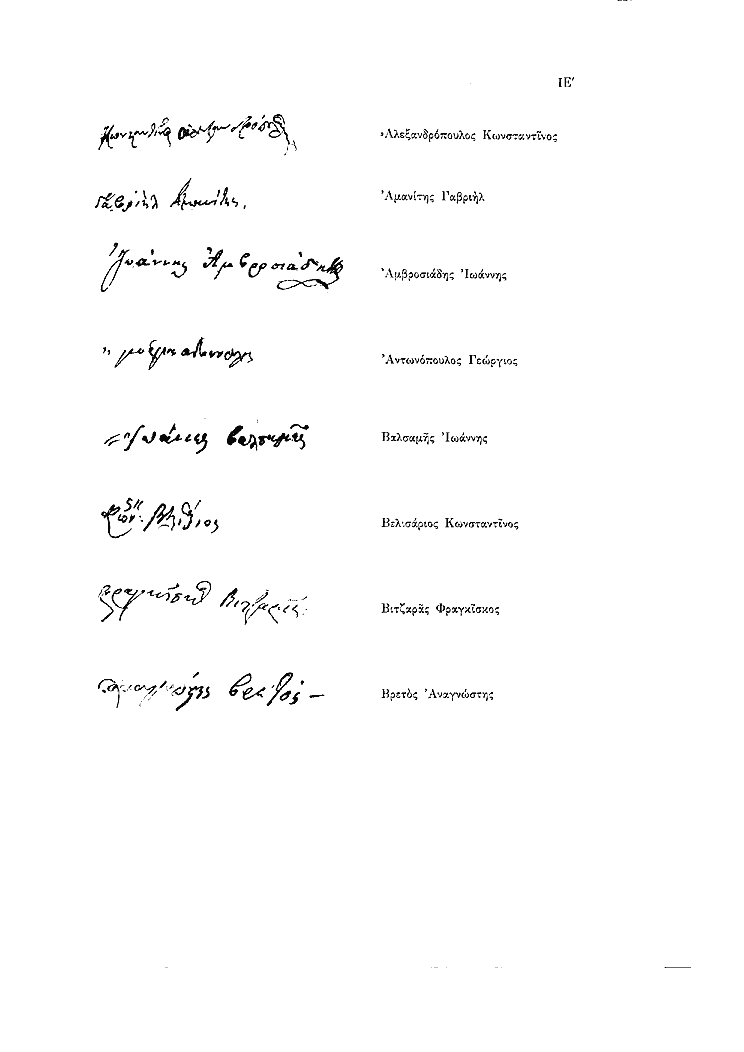 ΙΕ′
Ἀλεξανδρόπουλος Κωνσταντῖνος
Γαβριὴλ Ἀμανίτης.
Ἀμανίτης Γαβριὴλ
Ἰωάννης Ἀμβροσιάδης
Ἀμβροσιάδης Ἰωάννης
Ἀντωνόπουλος Γεώργιος
Ἰωάννης Βαλσαμῆς
Βαλσαμῆς Ἰωάννης
Βελισάριος Κωνσταντῖνος
Βιτζαρᾶς Φραγκῖσκος
Ἀναγνώστης Βρετός –
Βρετὸς Ἀναγνώστης